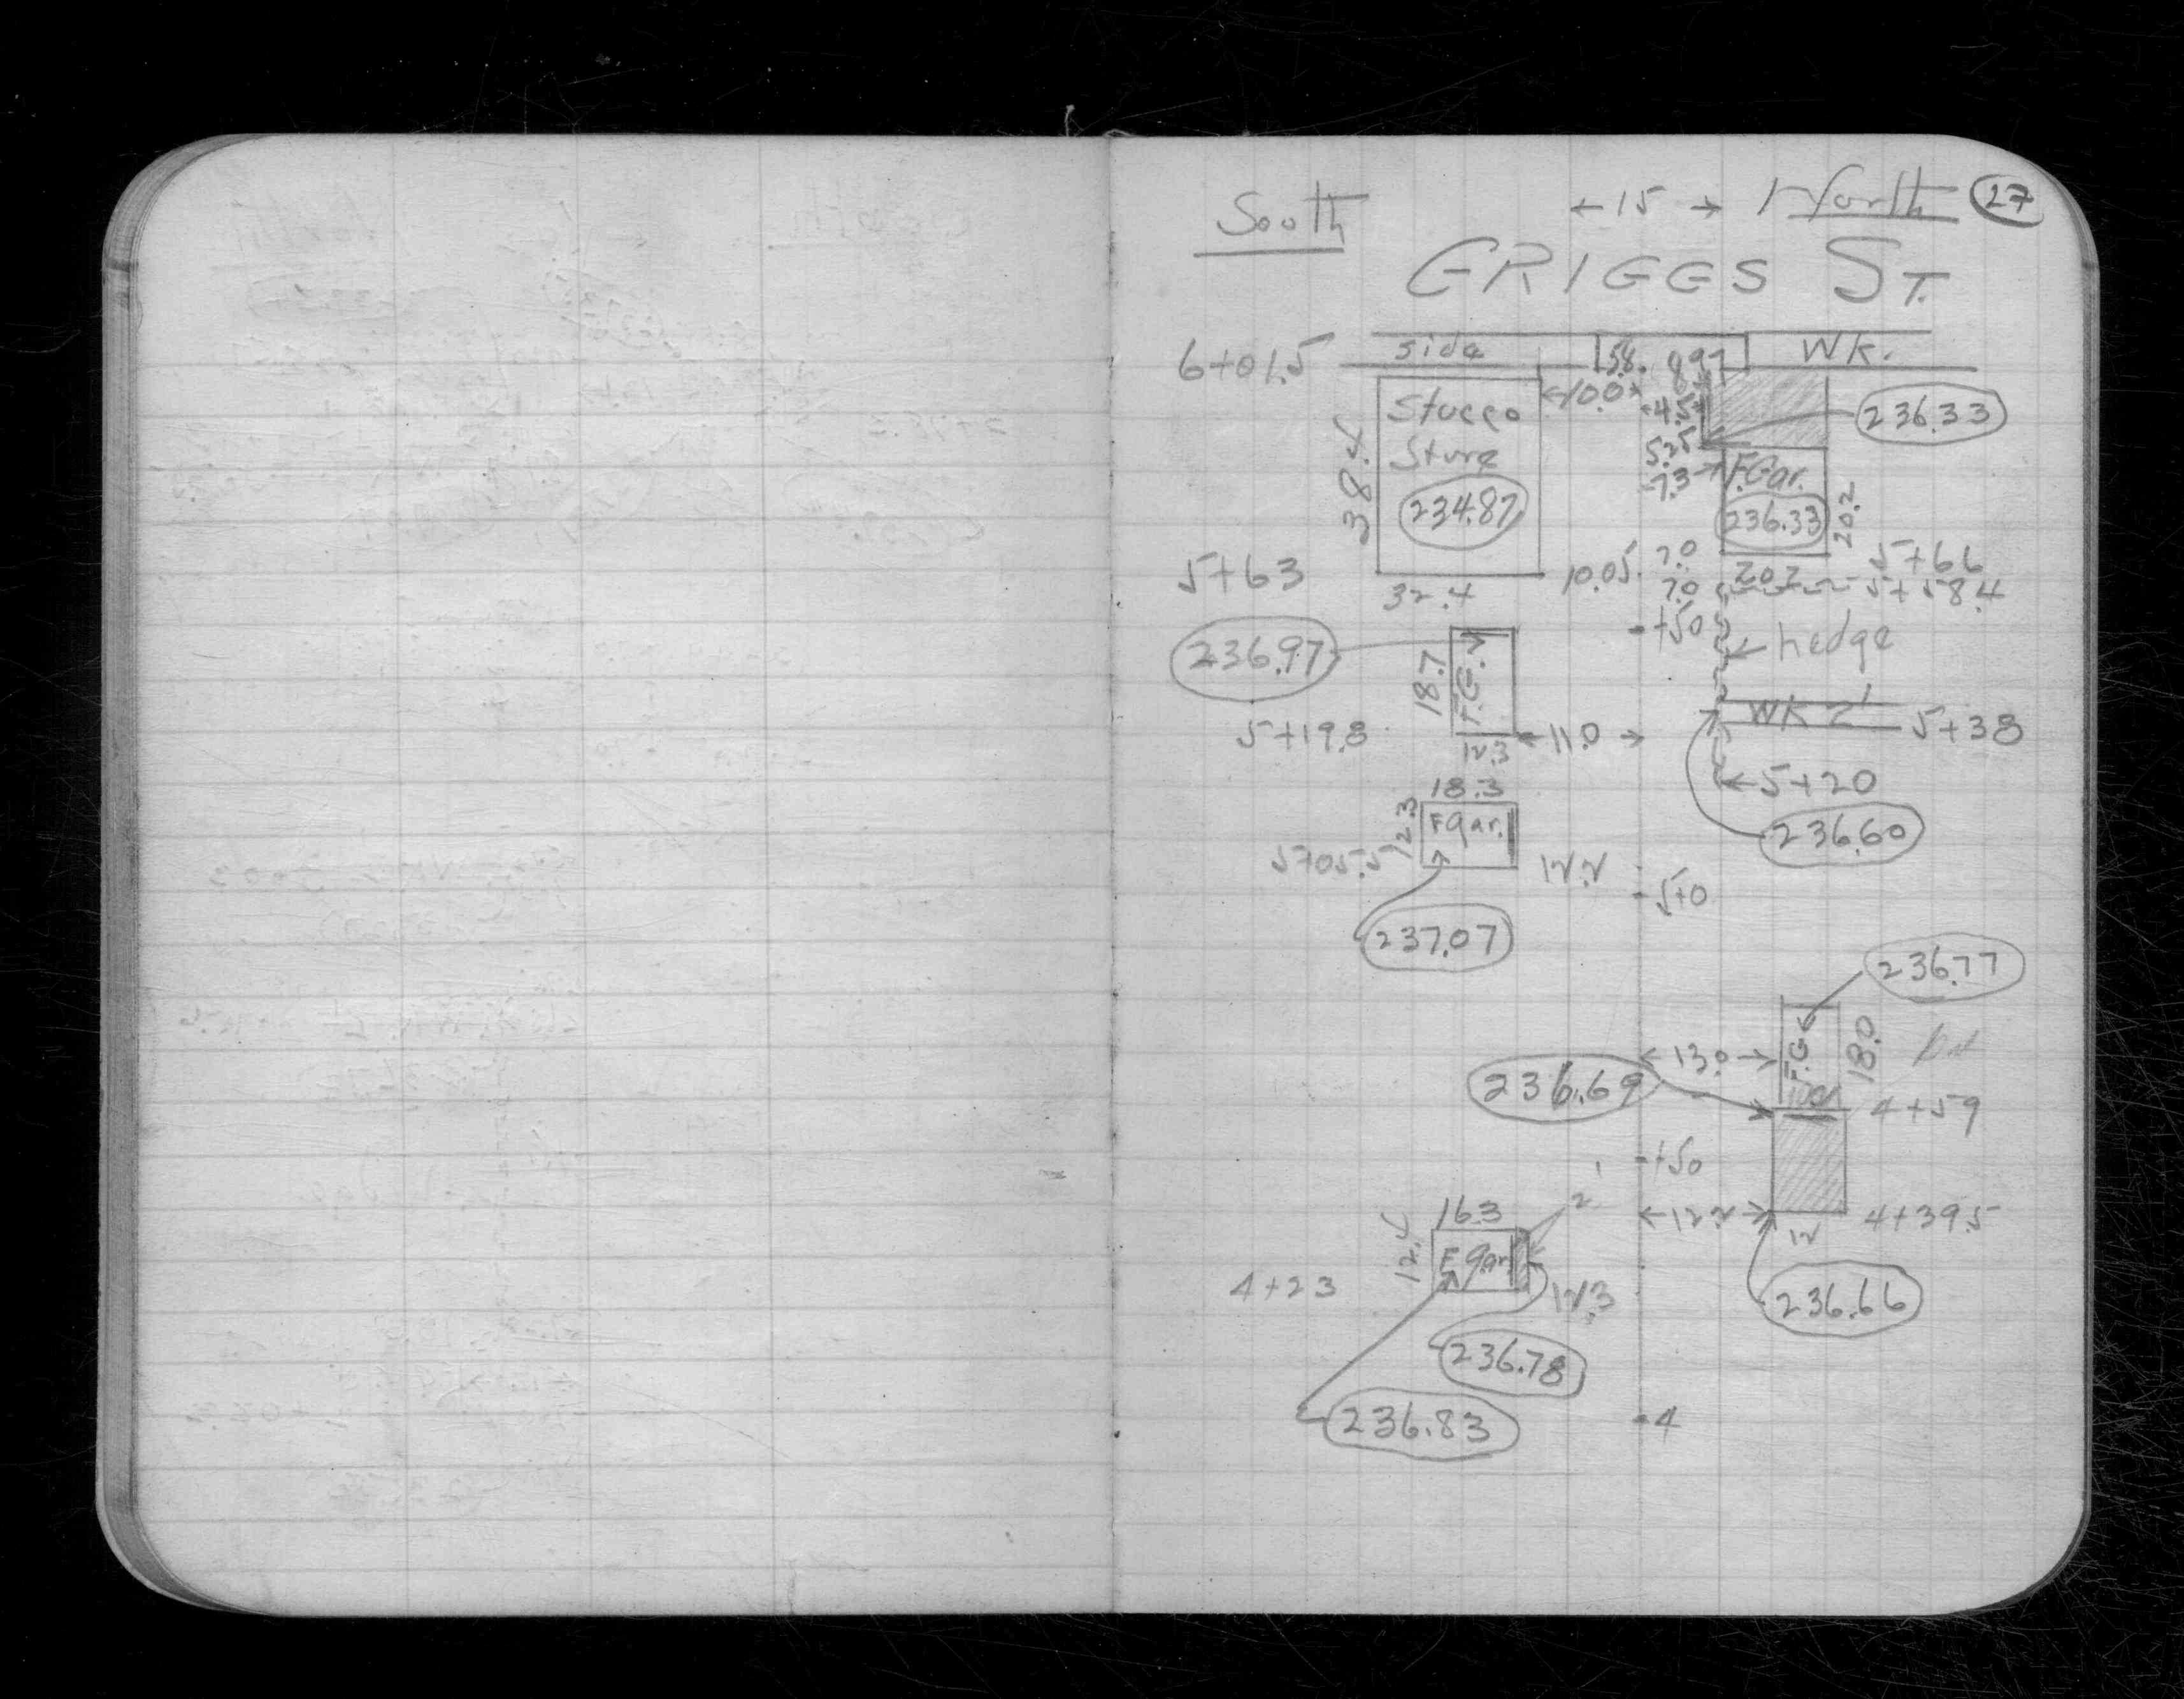 South ←15→ North 27
GRIGGS ST.
6+01.5 side 58. 8.97 WK.
←10.0→
Stucco 4.5 236.33
Store 5.25
38.4 7.3→ F.Gar.
234.87 236.33 20.2
5+63 10.05 7.0 20.2 5+66
32.4 7.0 5+58.4
+50
236.97 ←hedge
18.7 F.G.
WK 2' 5+38
5+19.8 12.3 ←11.0→
18.3 ←5+20
12.3 F Gar.
236.60
5+05.5 12.2
5+0
237.07
236.77
←13.0→ F.G. 18.0
236.69
4+59
+50
2'
16.3 ←12.2→ 4+39.5
12
12.4 F Gar.
4+23 12.3 236.66
236.78
236.83 4